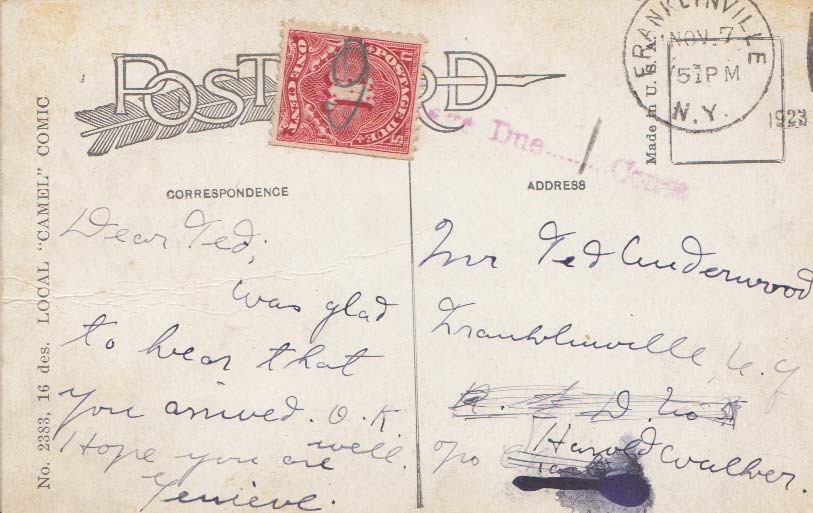 POST CARD
ONE CENT
POSTAGE DUE
U S
1
FRANKLINVILLE
NOV. 7
51PM
N.Y.
1923
Made in U. S. A.
Due........ Cents
/
CORRESPONDENCE
ADDRESS
No. 2383, 16 des. LOCAL "CAMEL" COMIC
Dear Ted;
was glad
to hear that
you arrived. O.K
Hope you are well.
Genieve.
Mr Ted Underwood
Franklinville, N.Y
R. D. No
c/o Harold Walker.